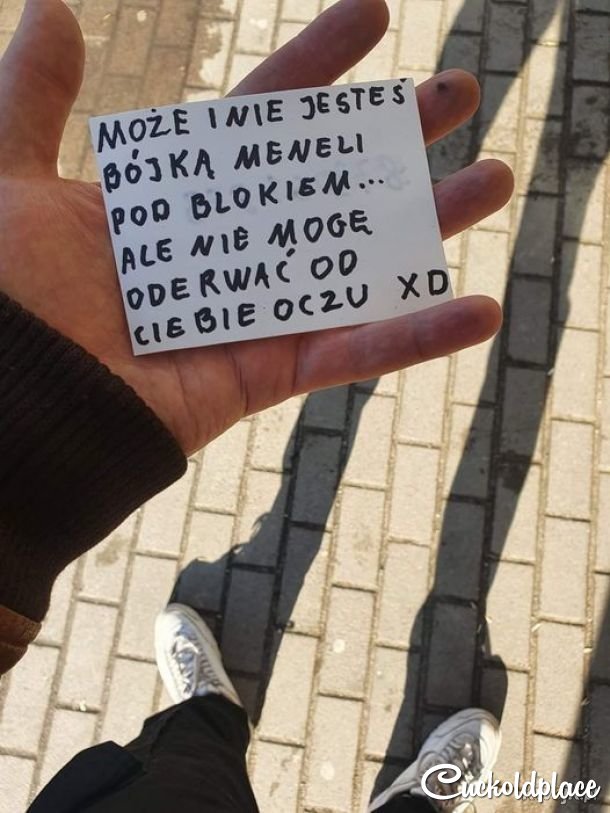 MOŻE I NIE JESTEŚ
BÓJKĄ MENELI
POD BLOKIEM...
ALE NIE MOGĘ
ODERWAĆ OD
CIEBIE OCZU XD
Cuckoldplace